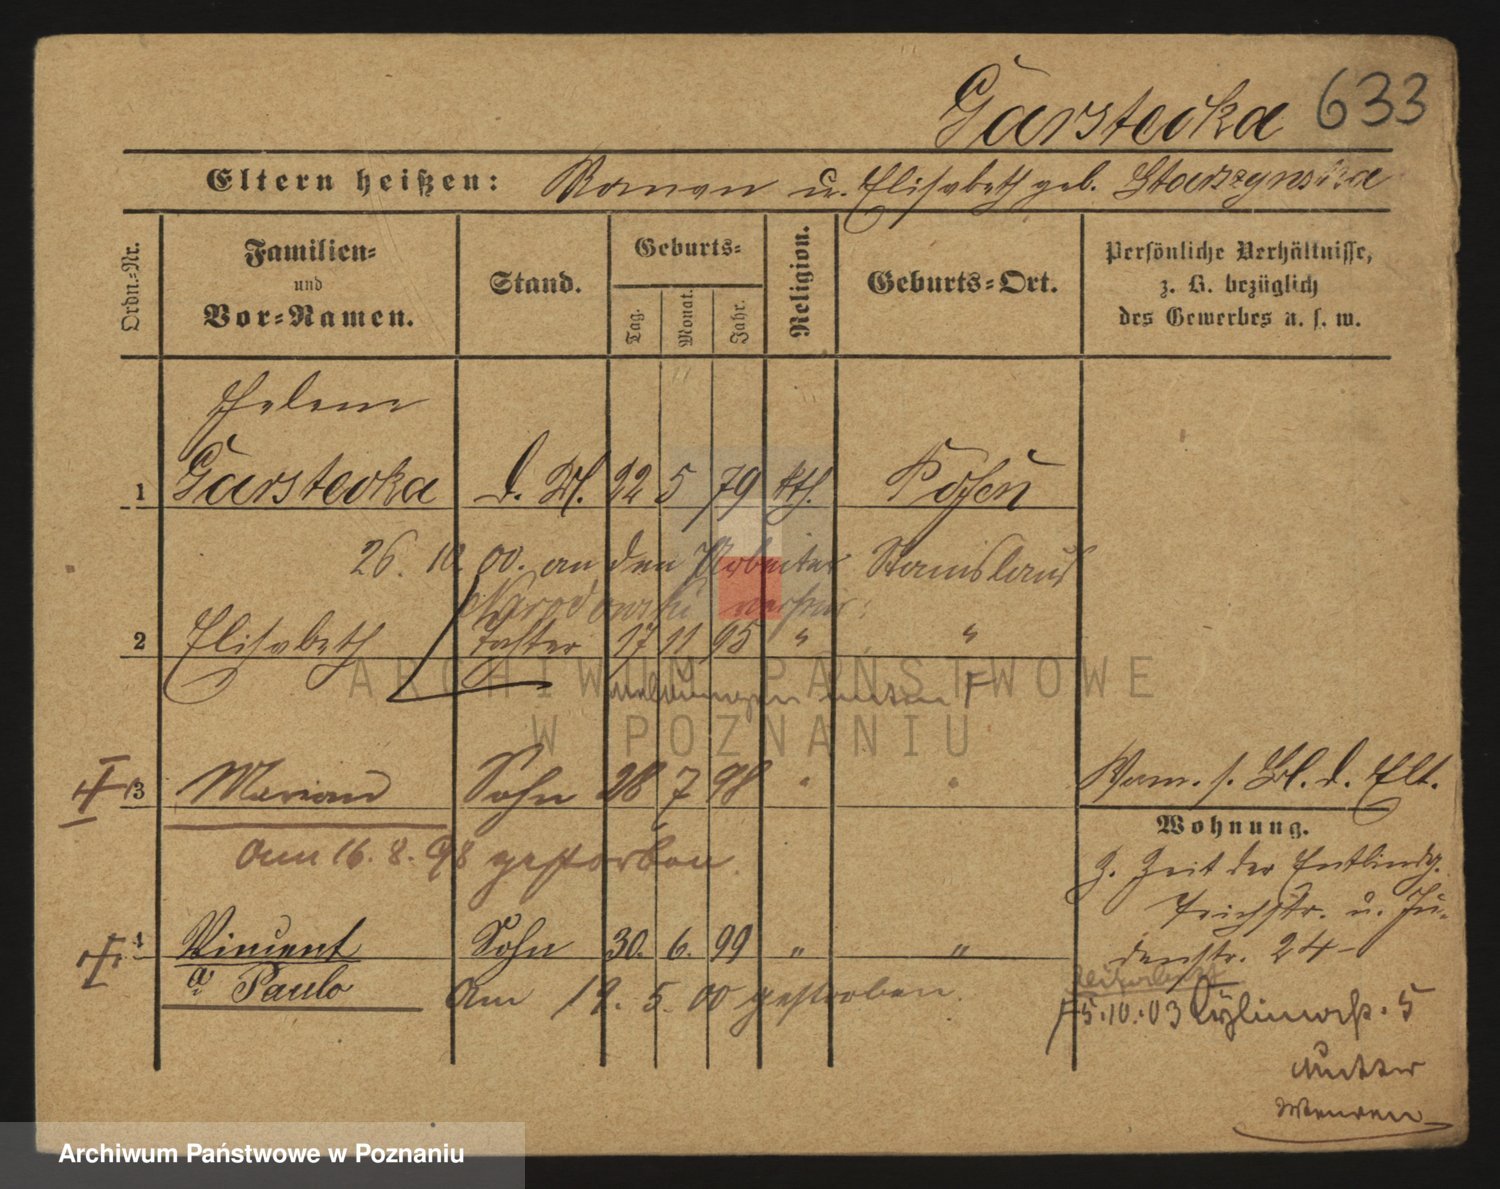 Garstecka 633
Eltern heißen: Roman u. Elisabeth geb. Starzynska
Ordn.=Nr.
Familien=
und
Vor=Namen.
Stand.
Geburts=
Tag.
Monat.
Jahr.
Religion.
Geburts=Ort.
Persönliche Verhältnisse,
z. B. bezüglich
des Gewerbes u. s. w.
Helene
1 Garstecka d. M. 22 5 79 kth. Posen
26. 10. 00. an den Arbeiter Stanislaus
verheir.
2 Elisabeth Tochter 17 11 95 " "
unten F
3 Marian Sohn 28 7 98 " "
am 16. 8. 98 gestorben.
4 Vincent Sohn 30. 6. 99 " "
a Paulo
am 19. 5. 00 gestorben.
s. Bl. d. Elt.
Wohnung.
z. Zeit der Entbindg.
Teichstr. u. Ju-
denstr. 24
5.10.03 5
Mutter
ARCHIWUM PAŃSTWOWE
W POZNANIU
Archiwum Państwowe w Poznaniu